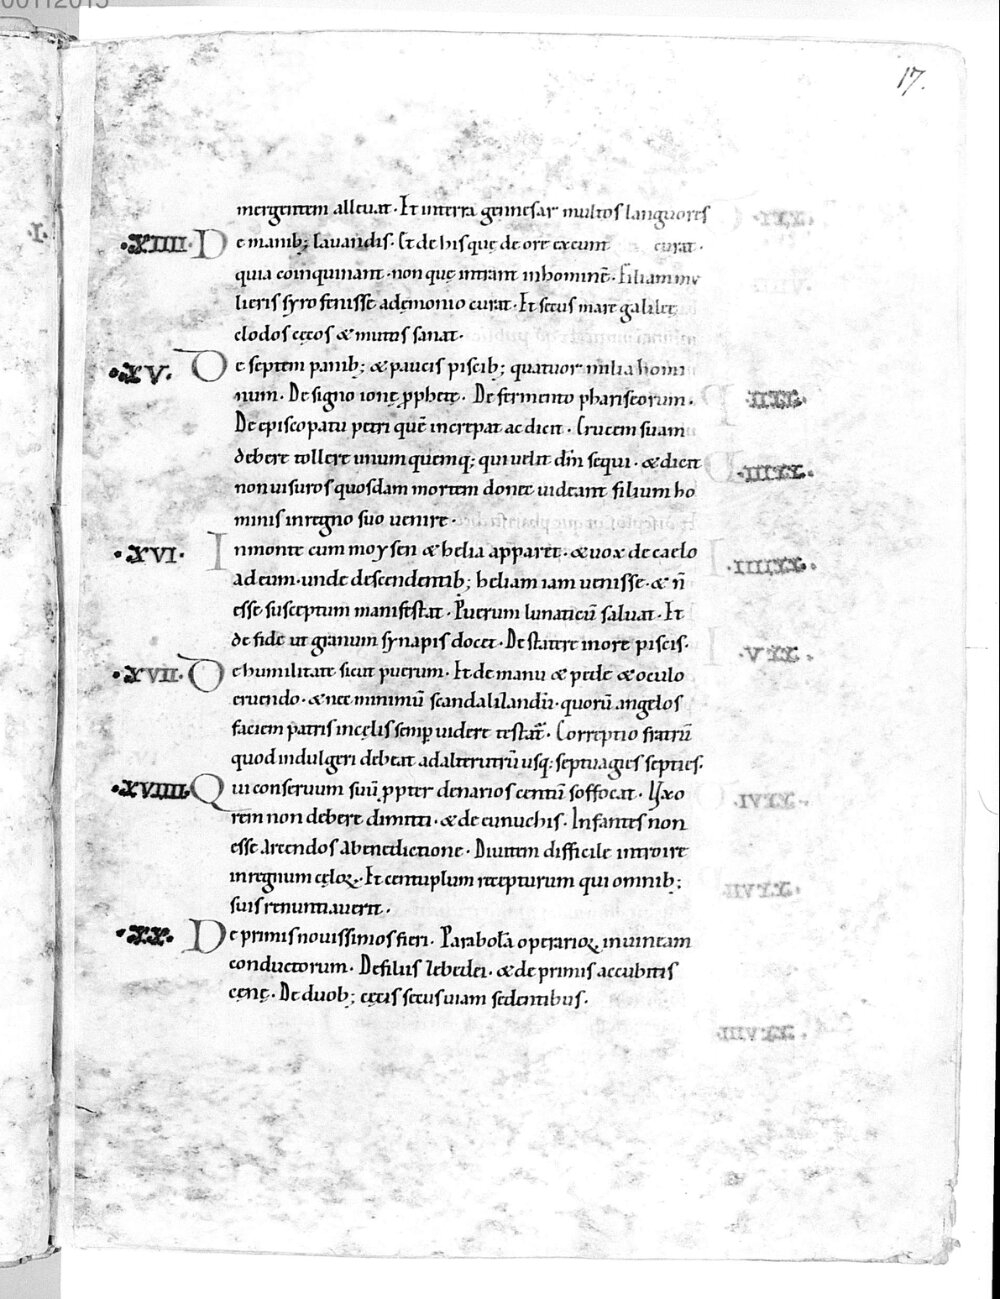 17.
mergentem alleuat. Et interra gennesar multos languores
·XIIII· De manib; lauandis. Et de his quę de ore exeunt curat.
quia coinquinant. non quę intrant inhominē. Filiam mu
lieris syro fenisse a demonio curat. Et secus mare galileę
clodos cęcos & mutos sanat.
·XV· De septem panib; & paucis piscib; quatuor milia homi
num. De signo ionę ꝓphetę. De fermento phariseorum.
De episcopatu petri quē increpat ac dicit. Crucem suam
debere tollere unum quemq; qui uelit dn̄m sequi. & dicit
non uisuros quosdam mortem donec uideant filium ho
minis inregno suo uenire.
·XVI· Inmonte cum moysen & helia apparet. & uox de caelo
ad eum. unde descendentib; heliam iam uenisse. & n̄
esse susceptum manifestat. Puerum lunaticū saluat. Et
de fide ut granum synapis docet. De statere inore piscis.
·XVII· De humilitate sicut puerum. Et de manu & pede & oculo
eruendo. & nec minimū scandalizandū. quorū angelos
faciem patris incęlis semꝑ uidere testat̄. Correptio fratrū
quod indulgeri debeat adalterutrū usq; septuagies septies.
·XVIIII· Qui conseruum suū ꝓpter denarios centū soffocat. Uxo
rem non debere dimitti. & de eunuchis. Infantes non
esse arcendos abenedictione. Diuitem difficile introire
inregnum cęloꝝ. Et centuplum recepturum qui omnib;
suis renuntiauerit.
·XX· De primis nouissimos fieri. Parabolā operarioꝝ inuineam
conductorum. De filiis zebedei. & de primis accubitis
cęnę. De duob; cęcis secus uiam sedentibus.